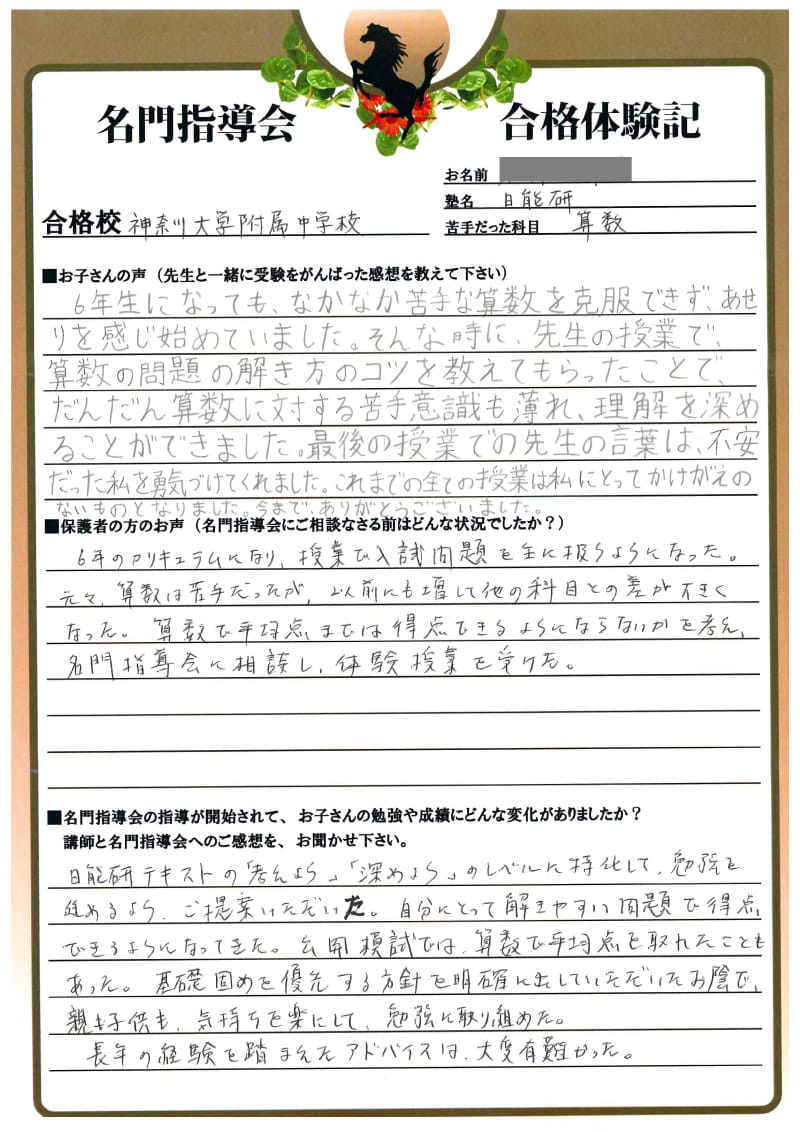 名門指導会
合格体験記
お名前
塾名 日能研
合格校 神奈川大学附属中学校
苦手だった科目 算数
■お子さんの声(先生と一緒に受験をがんばった感想を教えて下さい)
6年生になっても、なかなか苦手な算数を克服できず、あせ
りを感じ始めていました。そんな時に、先生の授業で、
算数の問題の解き方のコツを教えてもらったことで、
だんだん算数に対する苦手意識も薄れ、理解を深め
ることができました。最後の授業での先生の言葉は、不安
だった私を勇気づけてくれました。これまでの全ての授業は私にとってかけがえの
ないものとなりました。今まで、ありがとうございました。
■保護者の方のお声(名門指導会にご相談なさる前はどんな状況でしたか?)
6年のカリキュラムになり、授業で入試問題を主に扱うようになった。
元々、算数は苦手だったが、以前にも増して他の科目との差が大きく
なった。算数で平均点までは得点できるようにならないかを考え、
名門指導会に相談し、体験授業を受けた。
■名門指導会の指導が開始されて、お子さんの勉強や成績にどんな変化がありましたか?
講師と名門指導会へのご感想を、お聞かせ下さい。
日能研テキストの「考えよう」「深めよう」のレベルに特化して、勉強を
進めるよう、ご提案いただいた。自分にとって解きやすい問題で得点
できるようになってきた。公開模試では、算数で平均点を取れたことも
あった。基礎固めを優先する方針を明確に出していただいたお陰で、
親も子供も、気持ちを楽にして、勉強に取り組めた。
長年の経験を踏まえたアドバイスは、大変有難かった。